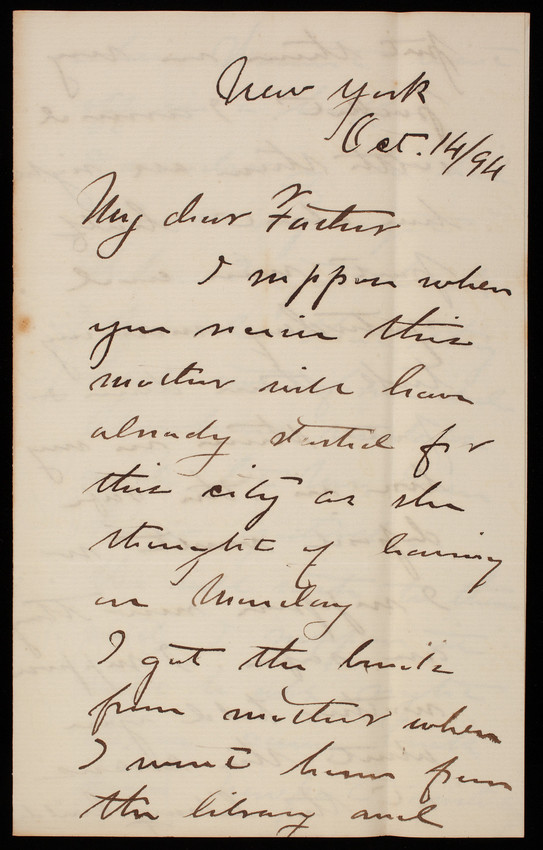 New York
Oct. 14/94
My dear Father
I suppose when
you receive this
mother will have
already started for
this city as she
thought of leaving
on Monday
I got the
from mother when
I went home from
the library and